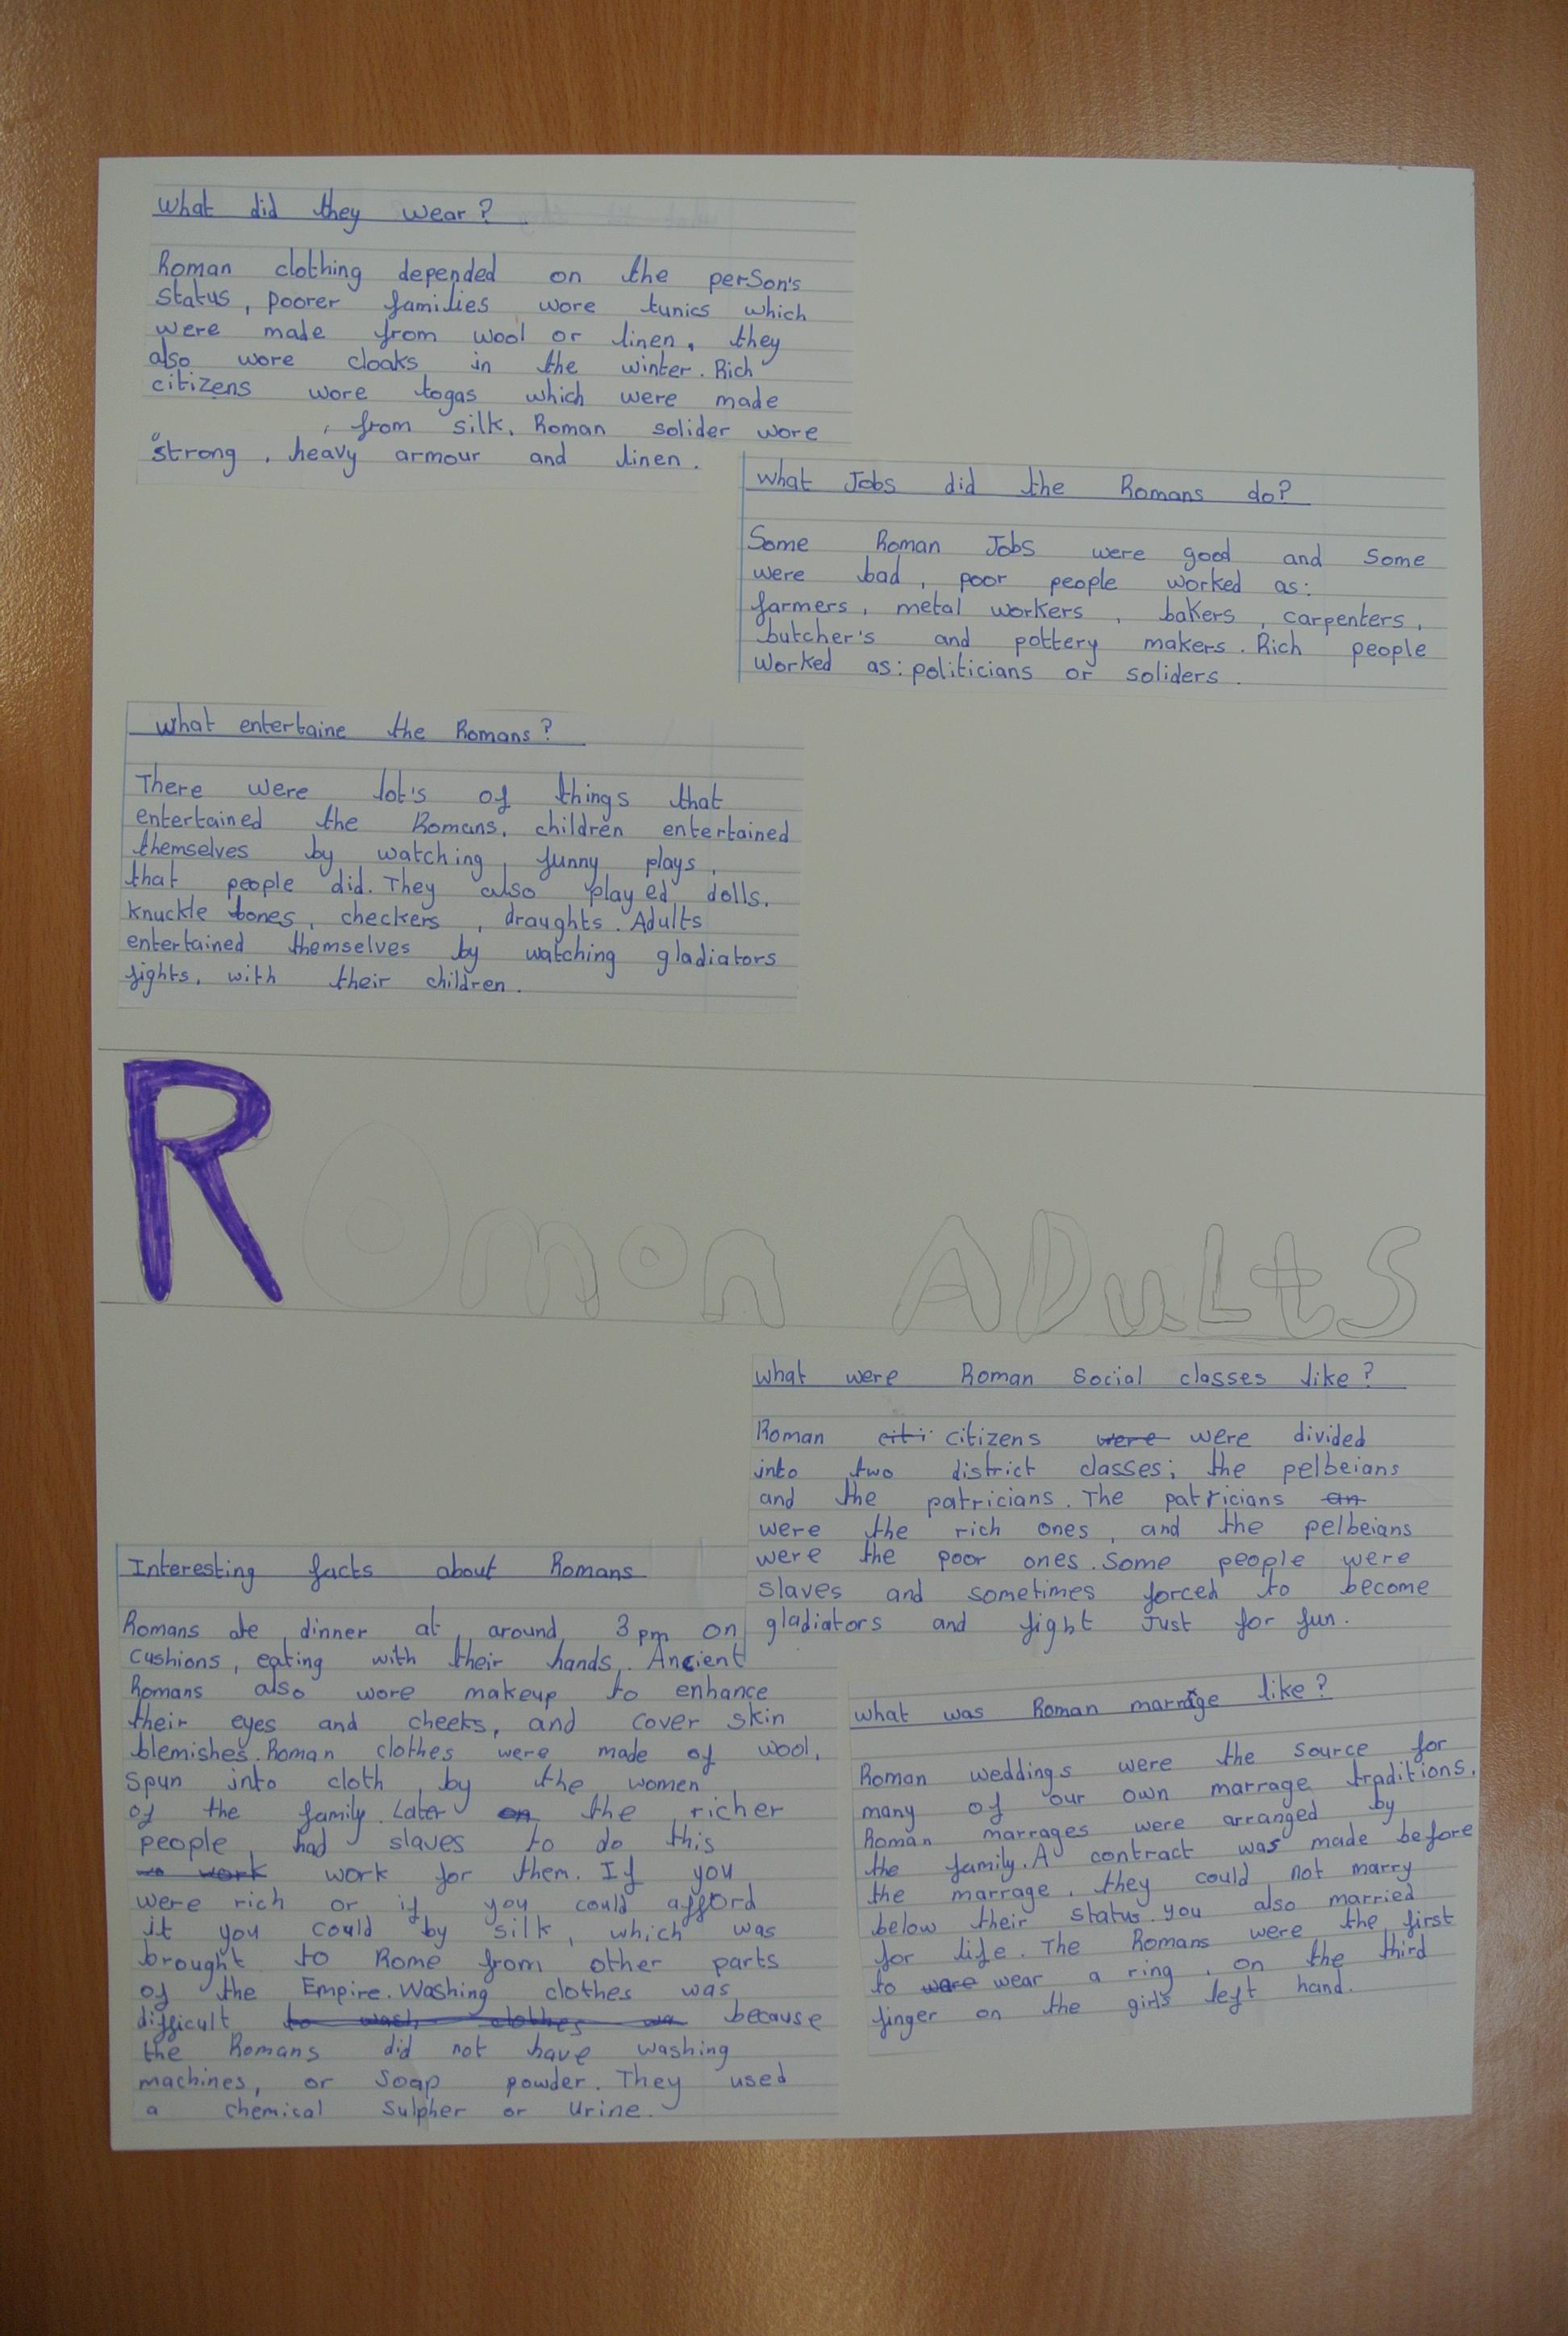 What did they wear?
Roman clothing depended on the perSon's
status, poorer families wore tunics which
were made from wool or linen, they
also wore cloaks in the winter. Rich
citizens wore togas which were made
, from silk. Roman solider wore
strong, heavy armour and linen.
What Jobs did the Romans do?
Some Roman Jobs were good and Some
were bad, poor people worked as:
farmers, metal workers, bakers, carpenters,
butcher's and pottery makers. Rich people
worked as: politicians or soliders.
What entertaine the Romans?
There were lot's of things that
entertained the Romans, children entertained
themselves by watching funny plays,
that people did. They also played dolls,
knuckle bones, checkers, draughts. Adults
entertained themselves by watching gladiators
fights, with their children.
ROmon ADuLtS
What were Roman Social classes like?
Roman citi citizens were were divided
into two district classes; the pelbeians
and the patricians. The patricians an
were the rich ones, and the pelbeians
were the poor ones. Some people were
slaves and sometimes forced to become
gladiators and fight Just for fun.
Interesting facts about Romans
Romans ate dinner at around 3pm on
cushions, eating with their hands. Ancient
Romans also wore makeup to enhance
their eyes and cheeks, and cover skin
blemishes. Roman clothes were made of wool,
spun into cloth by the women
of the family. Later on the richer
people had slaves to do this
work work for them. If you
were rich or if you could afford
it you could by silk, which was
brought to Rome from other parts
of the Empire. Washing clothes was
difficult to wash clothes wa because
the Romans did not have washing
machines, or Soap powder. They used
a chemical Sulpher or Urine.
What was Roman marrage like?
Roman weddings were the source for
many of our own marrage traditions.
Roman marrages were arranged by
the family. A contract was made before
the marrage, they could not marry
below their status. you also married
for life. The Romans were the first
to ware wear a ring, on the third
finger on the girls left hand.